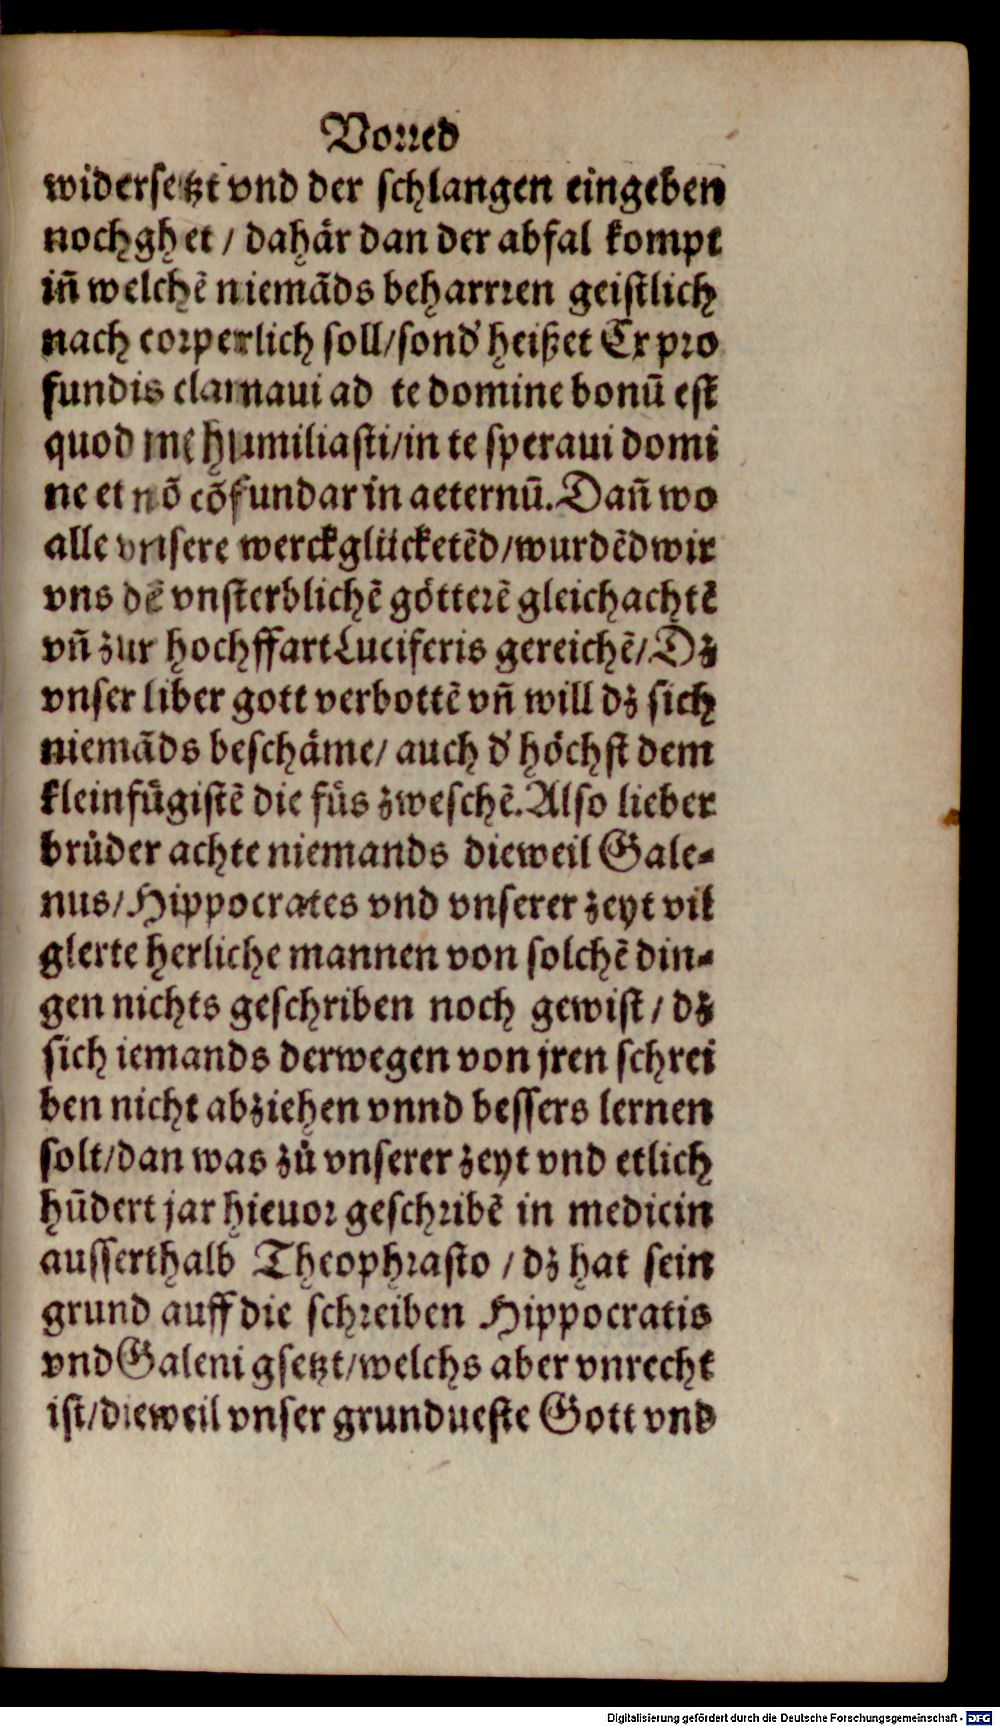 Vorred
widersetzt vnd der schlangen eingeben
nochghet / dahär dan der abfal kompt
iñ welchē niemāds beharrren geistlich
nach corperlich soll/sond' heißet Ex pro
fundis clamaui ad te domine bonū est
quod me humiliasti/in te speraui domi
ne et nō cōfundar in aeternū. Dañ wo
alle vnsere werckglücketēd/wurdēd wir
vns dē vnsterblichē götterē gleichachtē
vñ zur hochffart Luciferis gereichē/Dz
vnser liber gott verbottē vñ will dz sich
niemāds beschäme/ auch d' höchst dem
kleinfügistē die füs zweschē. Also lieber
brůder achte niemands dieweil Gale-
nus/Hippocrates vnd vnserer zeyt vil
glerte herliche mannen von solchē din-
gen nichts geschriben noch gewist / dz
sich iemands derwegen von jren schrei
ben nicht abziehen vnnd bessers lernen
solt/dan was zů vnserer zeyt vnd etlich
hūdert jar hieuor geschribē in medicin
ausserthalb Theophrasto / dz hat sein
grund auff die schreiben Hippocratis
vnd Galeni gsetzt/welchs aber vnrecht
ist/dieweil vnser grundueste Gott vnd
Digitalisierung gefördert durch die Deutsche Forschungsgemeinschaft - DFG